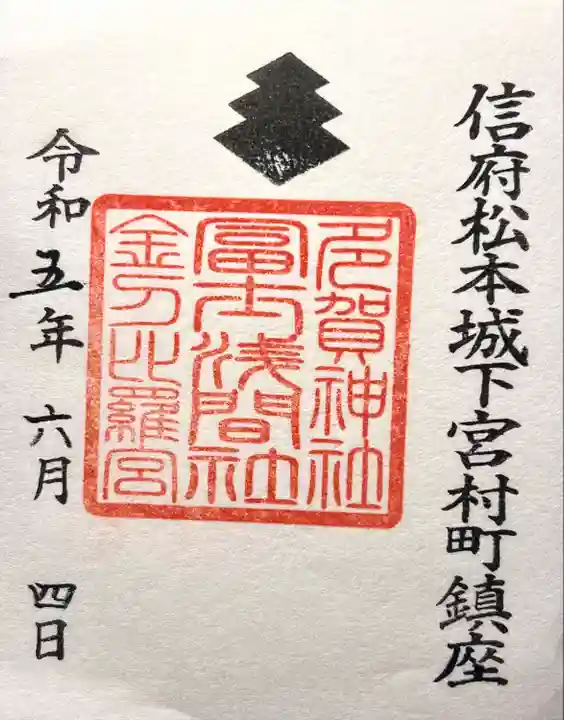 信府松本城下宮村町鎮座
多賀神社
冨士浅間社
金刀比羅宮
令和五年 六月 四日